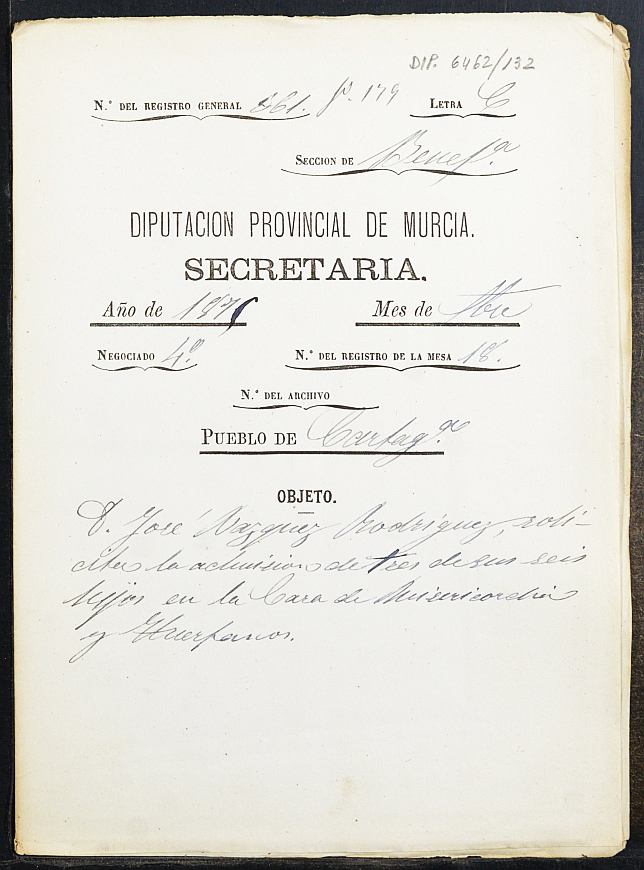 DIP. 6462/132
N.º DEL REGISTRO GENERAL 261. fº. 179 LETRA C
SECCION DE Benefª
DIPUTACION PROVINCIAL DE MURCIA.
SECRETARIA.
Año de 1871 Mes de
NEGOCIADO 4º N.º DEL REGISTRO DE LA MESA 18.
N.º DEL ARCHIVO
PUEBLO DE Cartagª
OBJETO.
D. José Vazquez Rodriguez, soli-
cita la admision de tres de sus seis
hijos en la Casa de Misericordia
y Huerfanos.